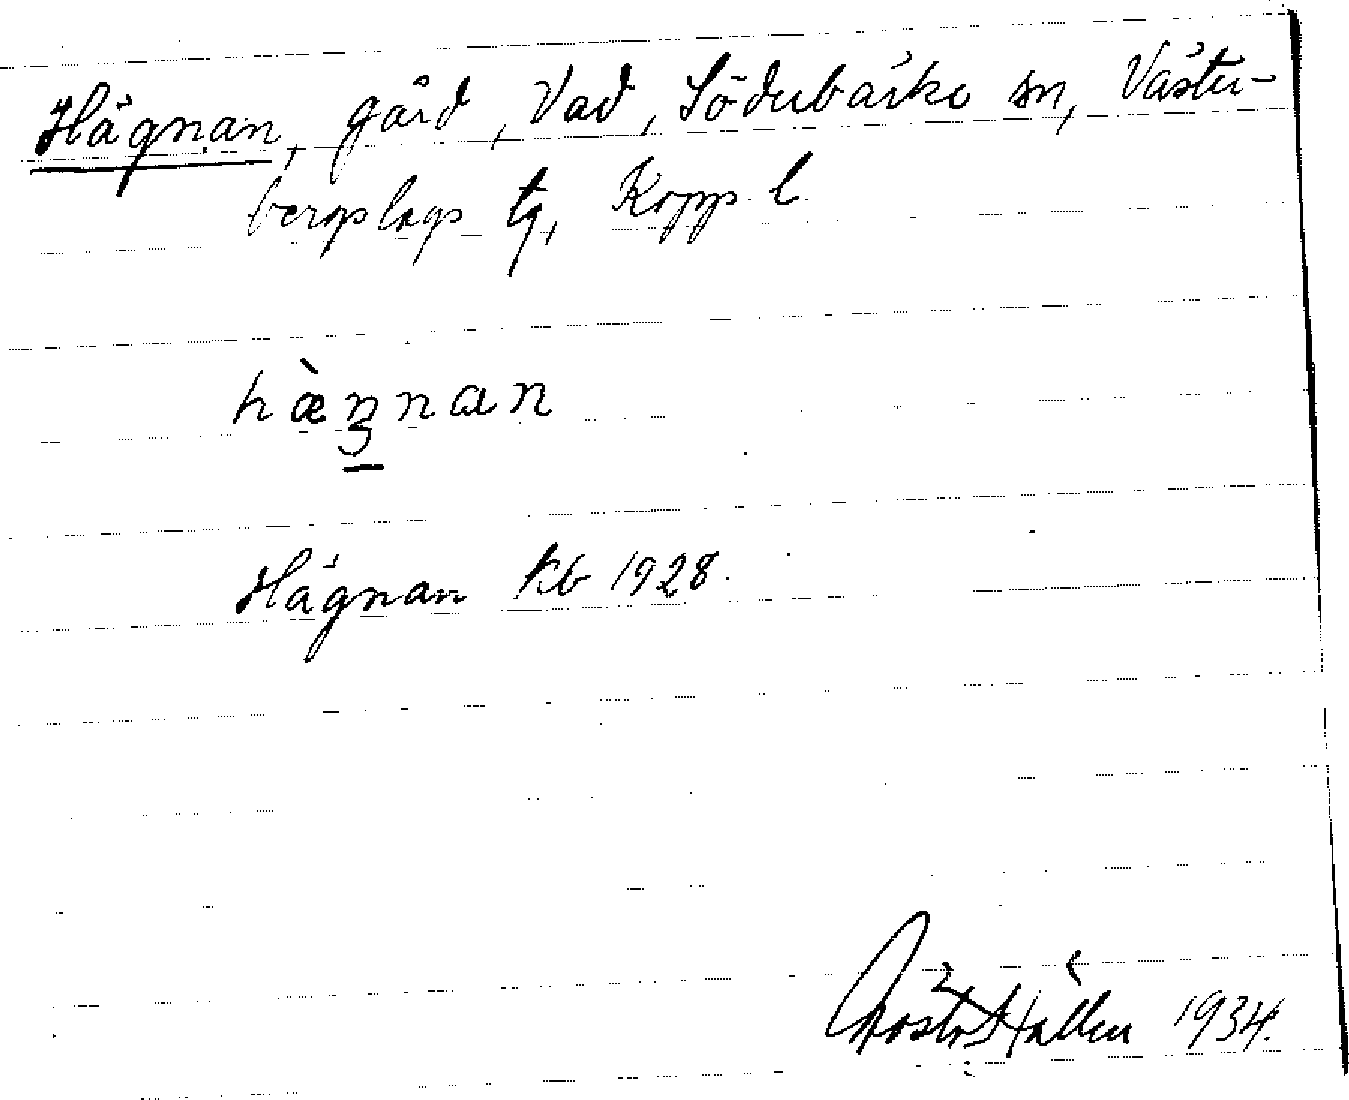 Hägnan, gård, Vad, Söderbärke sn, Väster-
bergslags tg, Kopp. l.
hæ̀ŋnan
Hägnan Kb 1928.
Hållen 1934.